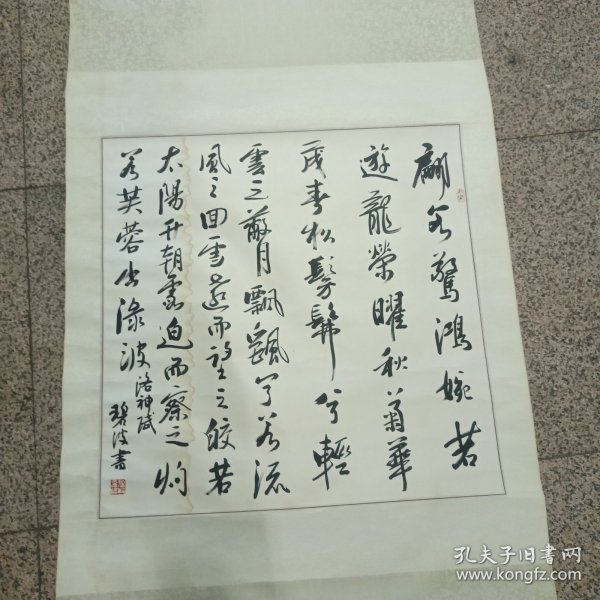 翩若驚鴻婉若
遊龍榮曜秋菊華
茂春松髣髴兮輕
雲之蔽月飄飖兮若流
風之回雪遠而望之皎若
太陽升朝霞迫而察之灼
若芙蓉出淥波
洛神賦
碧波書
孔夫子旧书网
www.kongfz.com